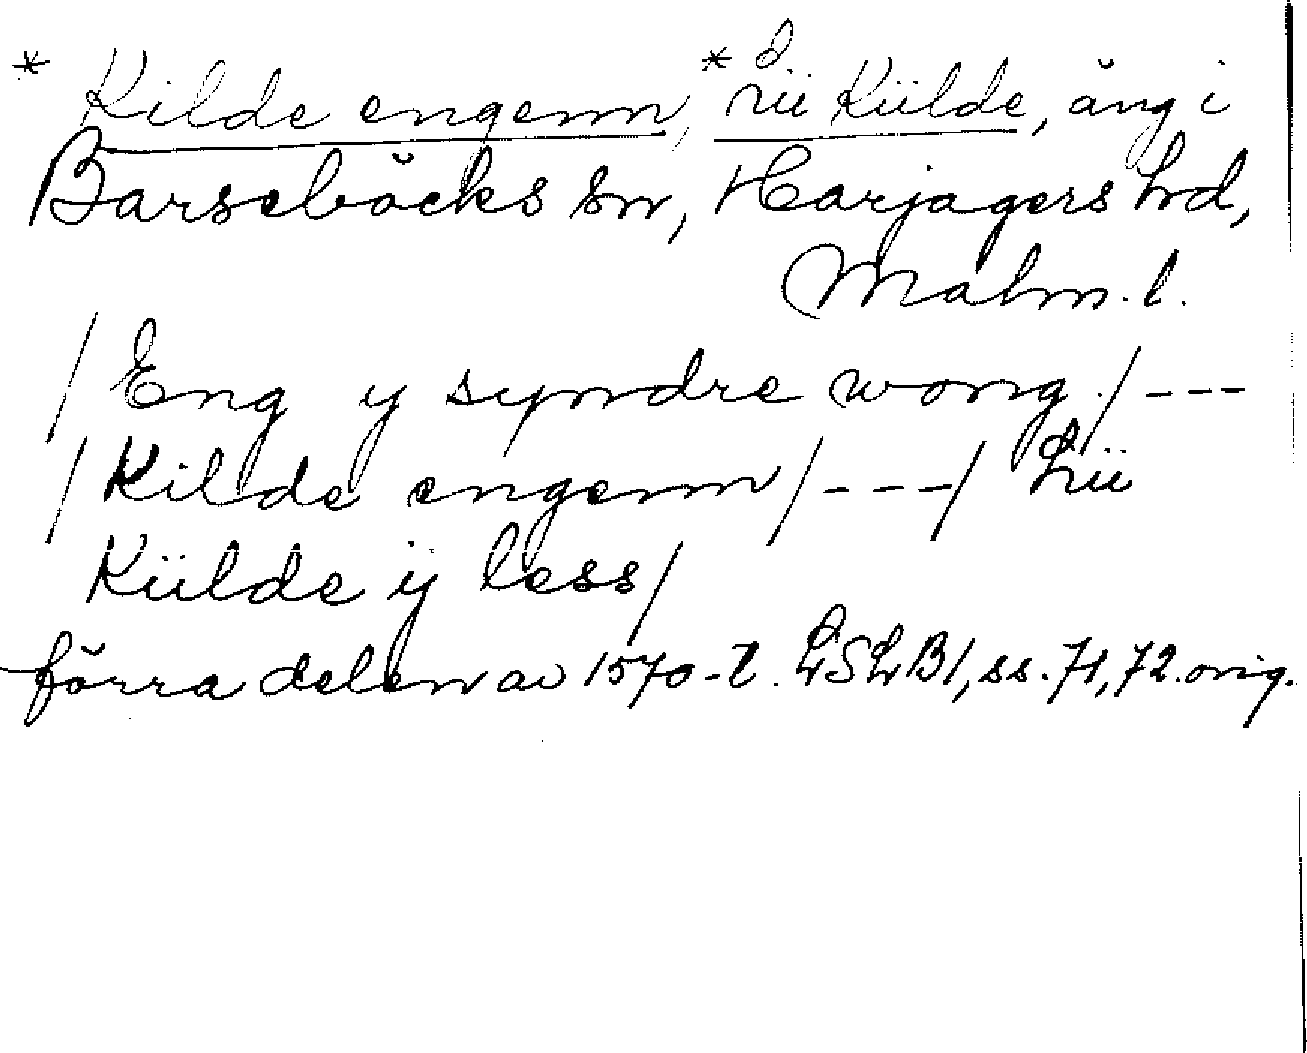 * Kilde engenn, * Lii Kiilde, äng i
Barsebäcks sn, Harjagers hd,
Malm. l.
/ Eng y syndre wong / ---
/ Kilde engenn / --- / Lii
Kiilde ij less /
förra delen av 1570-t. LSLB1, ss. 71, 72. orig.